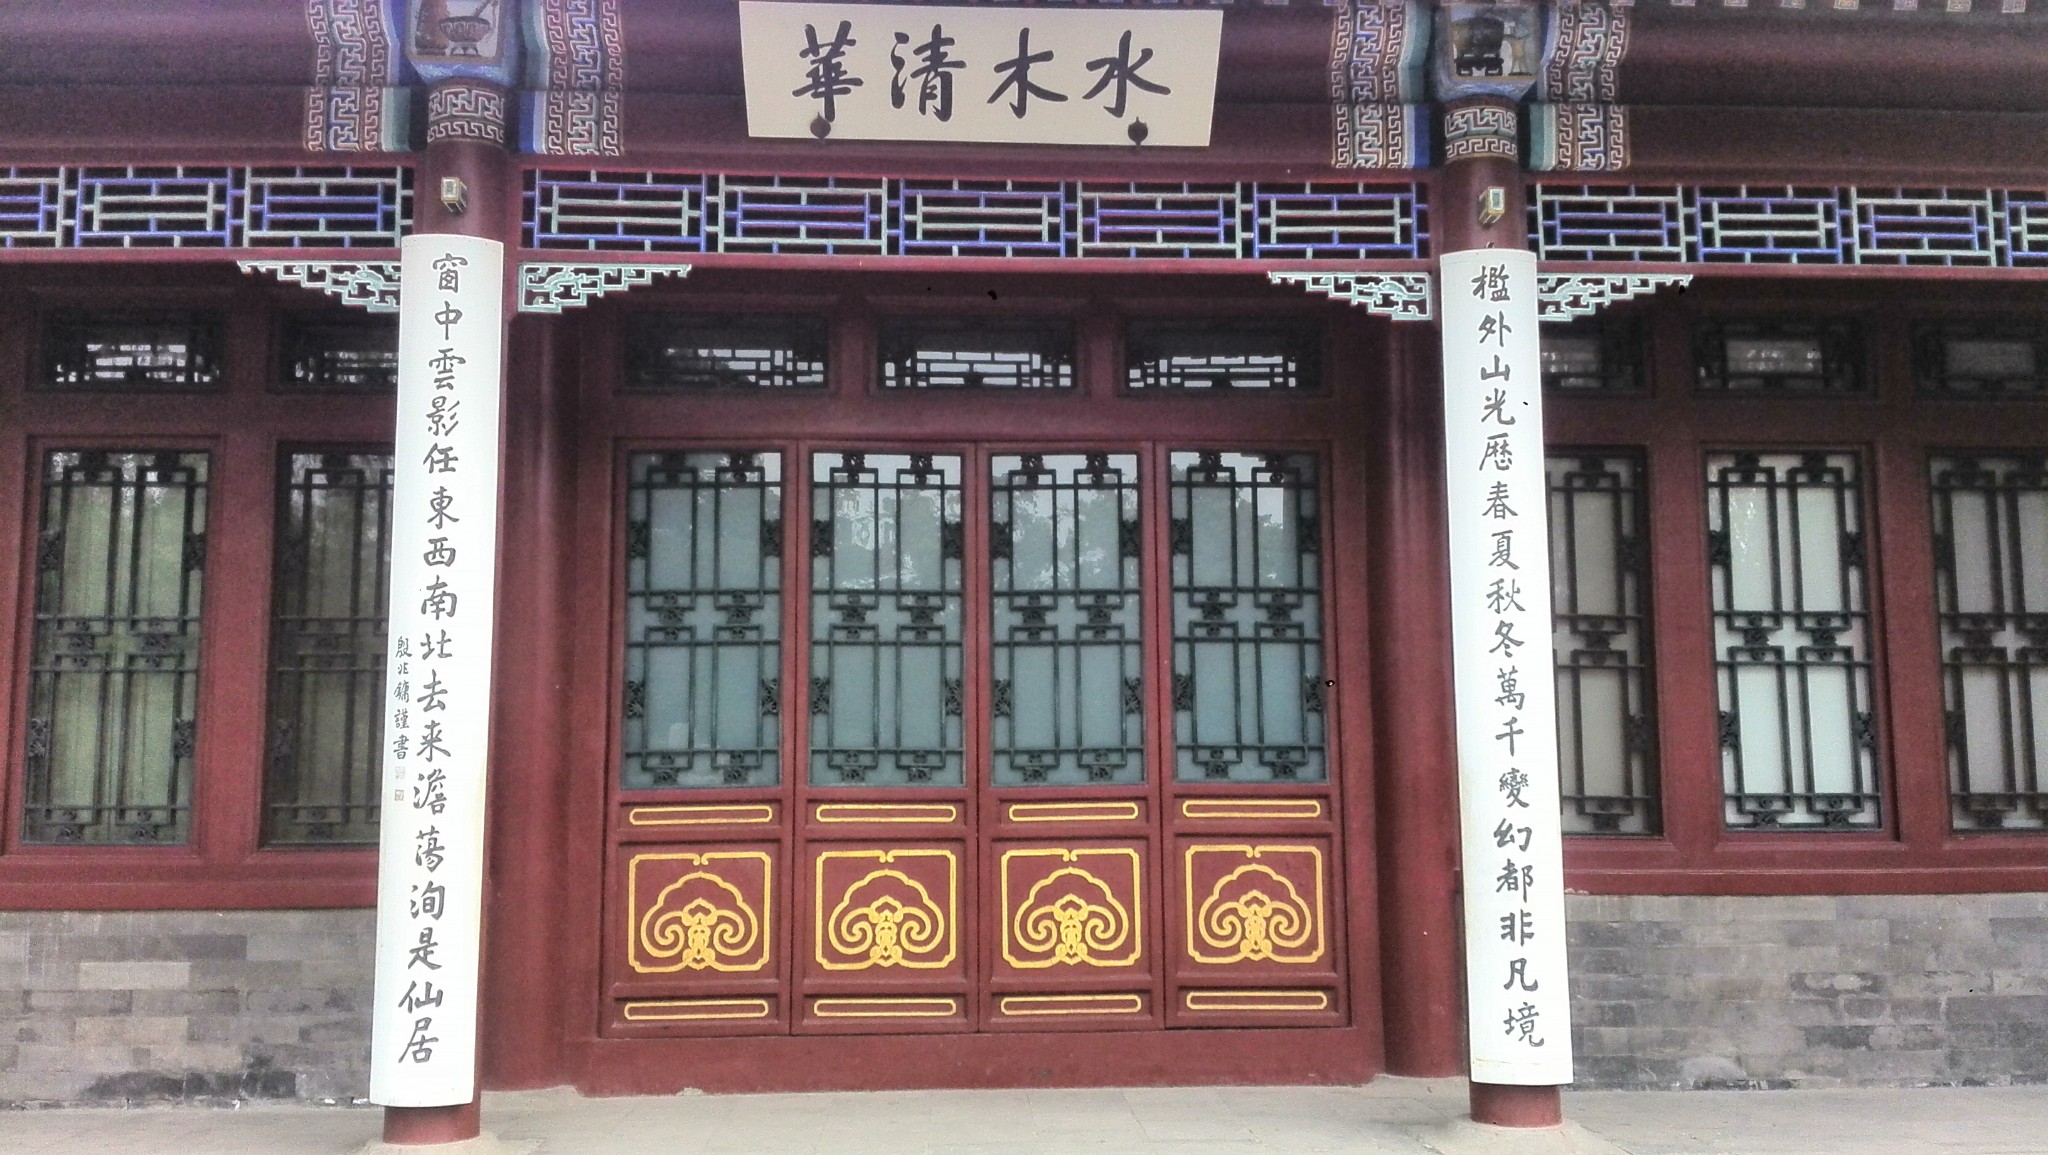 水木清華
檻外山光歷春夏秋冬萬千變幻都非凡境
窗中雲影任東西南北去來澹蕩洵是仙居
殷兆鏞謹書